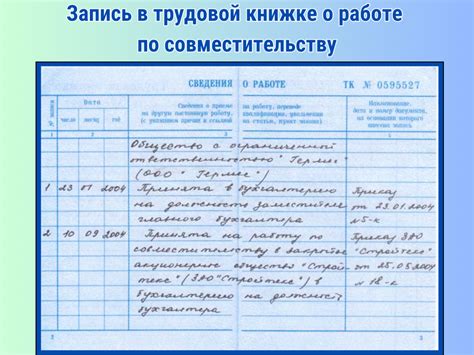 Запись в трудовой книжке о работе
по совместительству
СВЕДЕНИЯ О РАБОТЕ ТК № 0595527
№ записи Дата Сведения о приеме на работу, переводе
на другую постоянную работу, квалификации, увольнении
(с указанием причин и ссылкой на статью, пункт закона) Наименование,
дата и номер документа,
на основании которого
внесена запись
число месяц год
1 2 3 4
Общество с ограниченной
ответственностью "Гермес"
(ООО "Гермес")
1 23 01 2004 Принята в бухгалтерию Приказ
на должность заместителя от 23.01.2004
главного бухгалтера №5-к
2 10 09 2004 Принята на работу по Приказ ЗАО
совместительству в закрытое "Стройтекс"
акционерное общество "Строй- от 25.05.2004
текс" (ЗАО "Стройтекс") в № 18-к
бухгалтерию на должность
бухгалтера